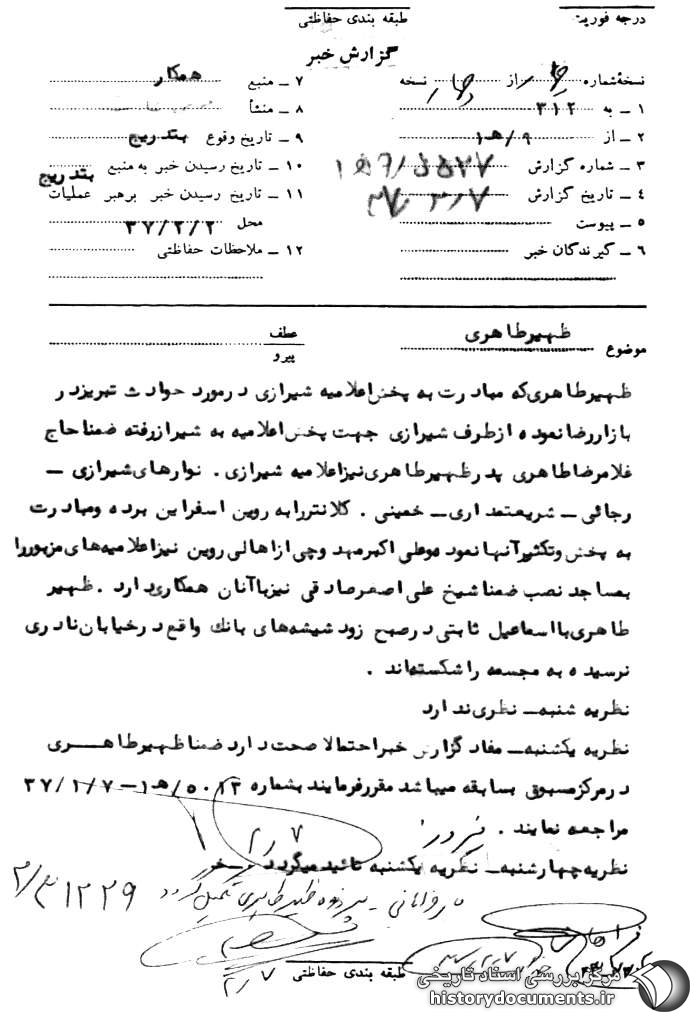 درجه فوریت طبقه بندی حفاظتی
گزارش خبر
نسخهٔ شماره از چهار نسخه
۱ ـ به ۳۱۲
۲ ـ از ۹/هـ۱
۳ ـ شماره گزارش
۴ ـ تاریخ گزارش ۳۷/۲/۷
۵ ـ پیوست
۶ ـ گیرندگان خبر
۷ ـ منبع همکار
۸ ـ منشأ
۹ ـ تاریخ وقوع بتدریج
۱۰ ـ تاریخ رسیدن خبر به منبع بتدریج
۱۱ ـ تاریخ رسیدن خبر برهبر عملیات
محل ۳۷/۲/۲
۱۲ ـ ملاحظات حفاظتی
موضوع ظهیرطاهری
عطف
پیرو
ظهیرطاهری که مبادرت به پخش اعلامیه شیرازی درمورد حوادث تبریزدر
بازاررضا نموده ازطرف شیرازی جهت پخش اعلامیه به شیرازرفته ضمنا حاج
غلامرضا طاهری پدرظهیرطاهری نیزاعلامیه شیرازی . نوارهای شیرازی ـ
رجائی ـ شریعتمداری ـ خمینی . کلانتررا به روین اسفراین برده ومبادرت
به پخش وتکثیرآنها نموده وعلی اکبرمهدوچی ازاهالی روین نیزاعلامیه های مزبوررا
بمساجد نصب ضمنا شیخ علی اصغرصادقی نیزباآنان همکاری دارد . ظهیر
طاهری بااسماعیل ثابتی درصبح زود شیشه های بانک واقع درخیابان نادری
نرسیده به مجسمه را شکسته اند .
نظریه شنبه ـ نظری ندارد
نظریه یکشنبه ـ مفاد گزارش خبراحتمالا صحت دارد ضمنا ظهیرطاهـــری
درمرکزمسبوق بسابقه میباشد مقررفرمایند بشماره ۵۰۱۳/هـ۱ـ ۳۷/۱/۷
مراجعه نمایند .
۲/۷
نظریه چهارشنبه ـ نظریه یکشنبه تائید میگردد
۲/۷
طبقه بندی حفاظتی
مرکز بررسی اسناد تاریخی
historydocuments.ir